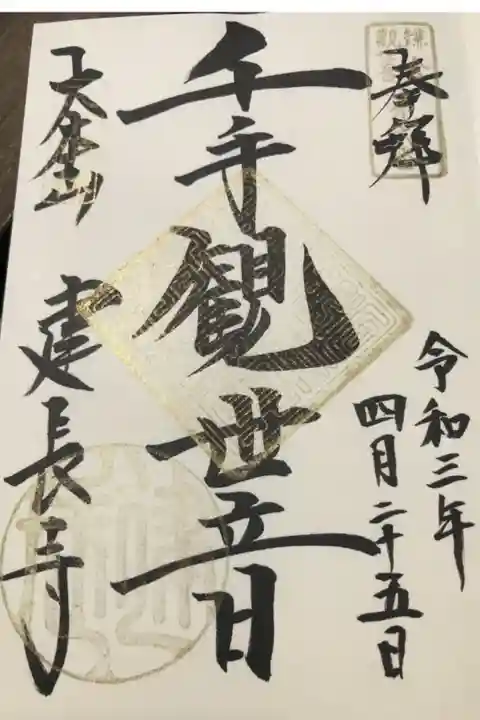 奉拝
令和三年
四月二十五日
千手観世音
巨福山
建長寺